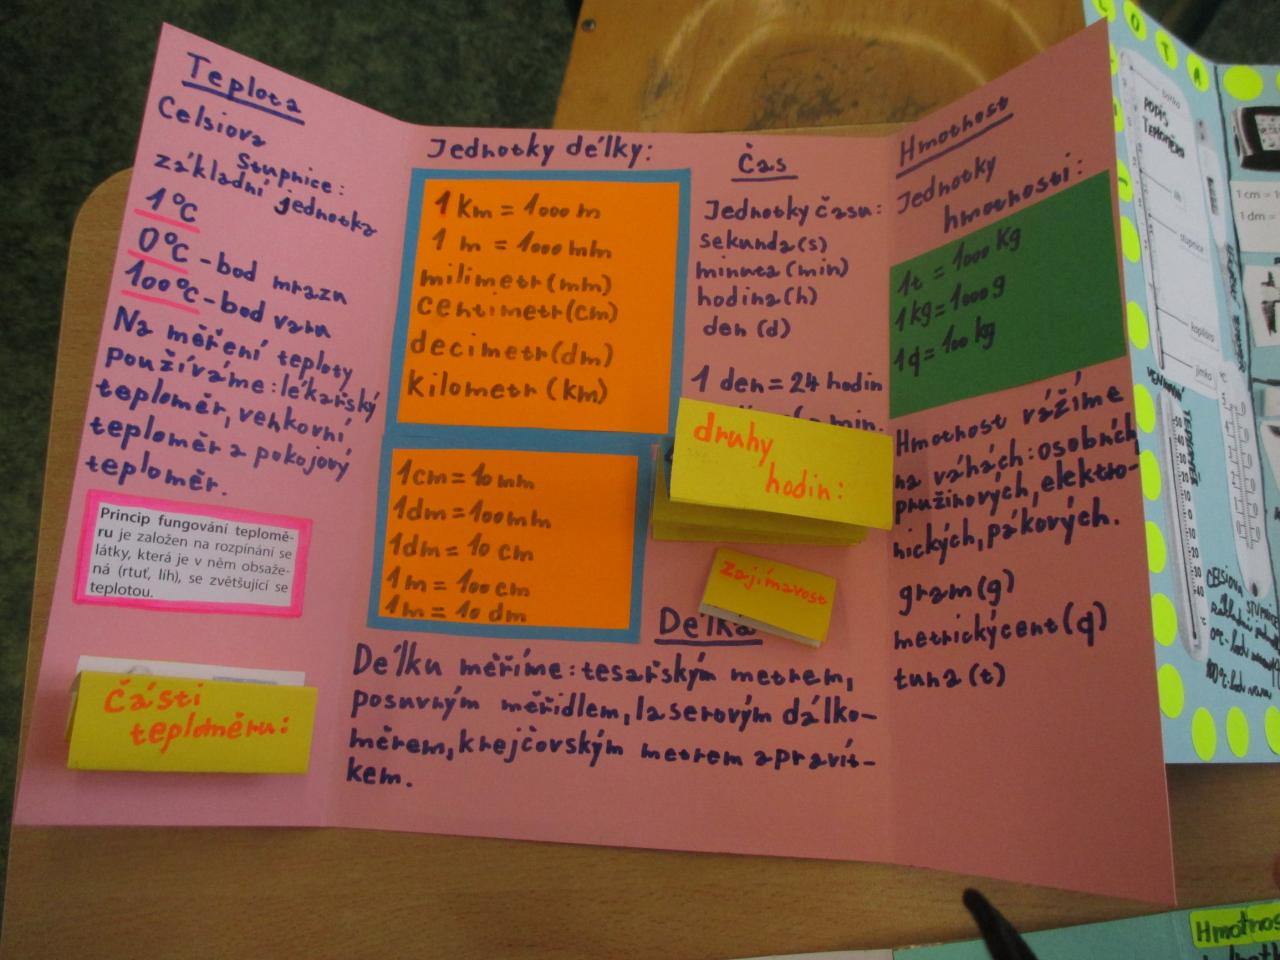 Teplota
Celsiova
Stupnice:
základní jednotka
1°C
0°C - bod mrazu
100°C - bod varu
Na měření teploty
používáme: lékařský
teploměr, venkovní
teploměr a pokojový
teploměr.
Princip fungování teplomě-
ru je založen na rozpínání se
látky, která je v něm obsaže-
ná (rtuť, líh), se zvětšující se
teplotou.
Části
teploměru:
Jednotky délky:
1 Km = 1000 m
1 m = 1000 mm
milimetr (mm)
centimetr (cm)
decimetr (dm)
Kilometr (Km)
1cm = 10 mm
1dm = 100 mm
1dm = 10 cm
1m = 100 cm
1m = 10 dm
Délka
Délku měříme: tesařským metrem,
posuvným měřidlem, laserovým dálko-
měrem, krejčovským metrem a pravít-
kem.
Čas
Jednotky času:
sekunda (s)
minuta (min)
hodina (h)
den (d)
1 den = 24 hodin
min.
druhy
hodin:
zajímavost
Hmotnost
Jednotky
hmotnosti:
1t = 1000 Kg
1kg = 1000 g
1q = 100 kg
Hmotnost vážíme
na váhách: osobních
pružinových, elektro-
nických, pákových.
gram (g)
metrický cent (q)
tuna (t)
O T A
POPIS
TEPLOMĚRU
stupnice
kapilára
jímka
VENKOVNÍ
TEPLOMĚR
1 cm = 1
1 dm =
Hmotnos